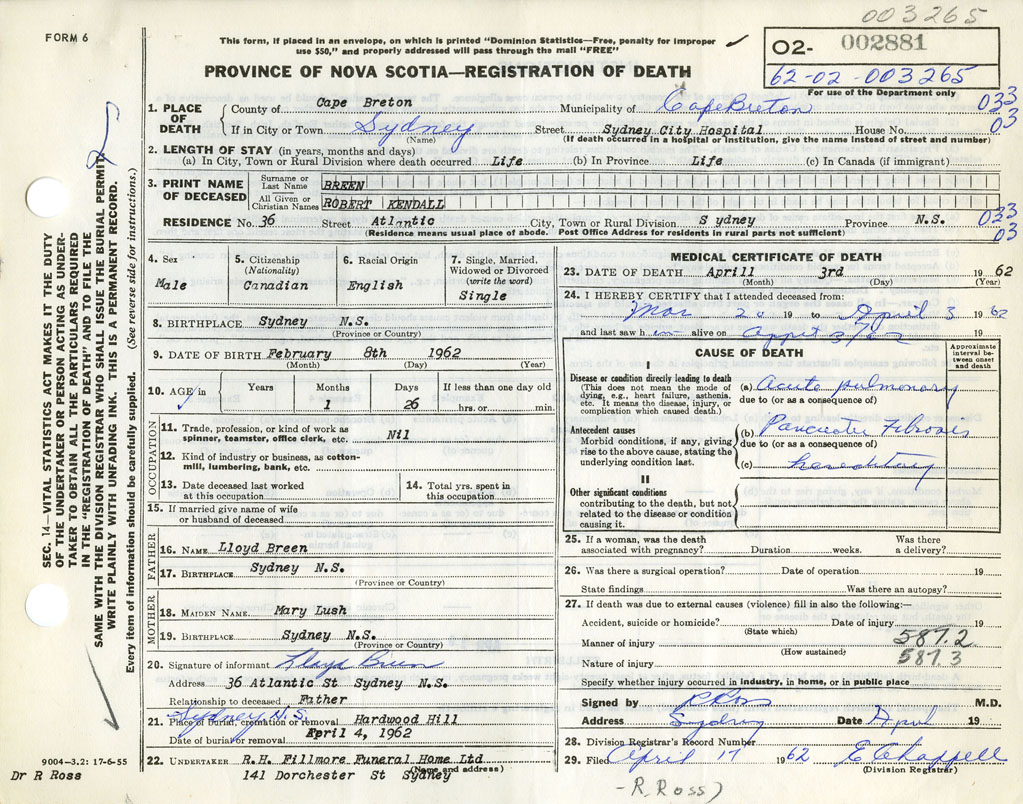 003265
FORM 6
This form, if placed in an envelope, on which is printed "Dominion Statistics—Free, penalty for improper
use $50," and properly addressed will pass through the mail "FREE"
02- 002881
62-02-003265
For use of the Department only
PROVINCE OF NOVA SCOTIA—REGISTRATION OF DEATH
033
03
1. PLACE OF DEATH
County of Cape Breton Municipality of Cape Breton
If in City or Town Sydney Street Sydney City Hospital House No.
(Name) (If death occurred in a hospital or institution, give the name instead of street and number)
2. LENGTH OF STAY (in years, months and days)
(a) In City, Town or Rural Division where death occurred Life (b) In Province Life (c) In Canada (if immigrant)
3. PRINT NAME OF DECEASED
Surname or Last Name BREEN
All Given or Christian Names ROBERT KENDALL
RESIDENCE No. 36 Street Atlantic City, Town or Rural Division S ydney Province N.S.
(Residence means usual place of abode. Post Office Address for residents in rural parts not sufficient)
033
03
4. Sex
Male
5. Citizenship
(Nationality)
Canadian
6. Racial Origin
English
7. Single, Married,
Widowed or Divorced
(write the word)
Single
8. BIRTHPLACE Sydney N.S.
(Province or Country)
9. DATE OF BIRTH February 8th 1962
(Month) (Day) (Year)
10. AGE in
Years Months Days If less than one day old
1 26 hrs. or min.
OCCUPATION
11. Trade, profession, or kind of work as
spinner, teamster, office clerk, etc. Nil
12. Kind of industry or business, as cotton-
mill, lumbering, bank, etc.
13. Date deceased last worked
at this occupation
14. Total yrs. spent in
this occupation
15. If married give name of wife
or husband of deceased
FATHER
16. NAME Lloyd Breen
17. BIRTHPLACE Sydney N.S.
(Province or Country)
MOTHER
18. MAIDEN NAME Mary Lush
19. BIRTHPLACE Sydney N.S.
(Province or Country)
20. Signature of informant Lloyd Breen
Address 36 Atlantic St Sydney N.S.
Relationship to deceased Father
Sydney N.S.
21. Place of burial, cremation or removal Hardwood Hill
Date of burial or removal April 4, 1962
22. UNDERTAKER R.H. Fillmore Funeral Home Ltd
(Name and address)
141 Dorchester St Sydney
MEDICAL CERTIFICATE OF DEATH
23. DATE OF DEATH Aprill 3rd 1962
(Month) (Day) (Year)
24. I HEREBY CERTIFY that I attended deceased from:
Mar 19 to April 3 1962
and last saw h alive on 19
CAUSE OF DEATH
Approximate
interval be-
tween onset
and death
I
Disease or condition directly leading to death
(This does not mean the mode of
dying, e.g., heart failure, asthenia,
etc. It means the disease, injury, or
complication which caused death.)
(a) Acute pulmonary
due to (or as a consequence of)
Antecedent causes
Morbid conditions, if any, giving
rise to the above cause, stating the
underlying condition last.
(b) Pancreatic Fibrosis
due to (or as a consequence of)
(c) hereditary
II
Other significant conditions
contributing to the death, but not
related to the disease or condition
causing it.
25. If a woman, was the death
associated with pregnancy? Duration weeks. Was there
a delivery?
26. Was there a surgical operation? Date of operation 19
State findings Was there an autopsy?
27. If death was due to external causes (violence) fill in also the following:—
Accident, suicide or homicide? Date of injury 19
(State which)
Manner of injury 587.2
(How sustained)
Nature of injury 587.3
Specify whether injury occurred in industry, in home, or in public place
Signed by R Ross M.D.
Address Sydney Date April 19
28. Division Registrar's Record Number
29. Filed April 17 1962 E Chappell
(Division Registrar)
- R. Ross)
SEC. 14—VITAL STATISTICS ACT MAKES IT THE DUTY
OF THE UNDERTAKER OR PERSON ACTING AS UNDER-
TAKER TO OBTAIN ALL THE PARTICULARS REQUIRED
IN THE "REGISTRATION OF DEATH" AND TO FILE THE
SAME WITH THE DIVISION REGISTRAR WHO SHALL ISSUE THE BURIAL PERMIT.
WRITE PLAINLY WITH UNFADING INK. THIS IS A PERMANENT RECORD.
Every item of information should be carefully supplied. (See reverse side for instructions.)
9004-3.2: 17-6-55
Dr R Ross